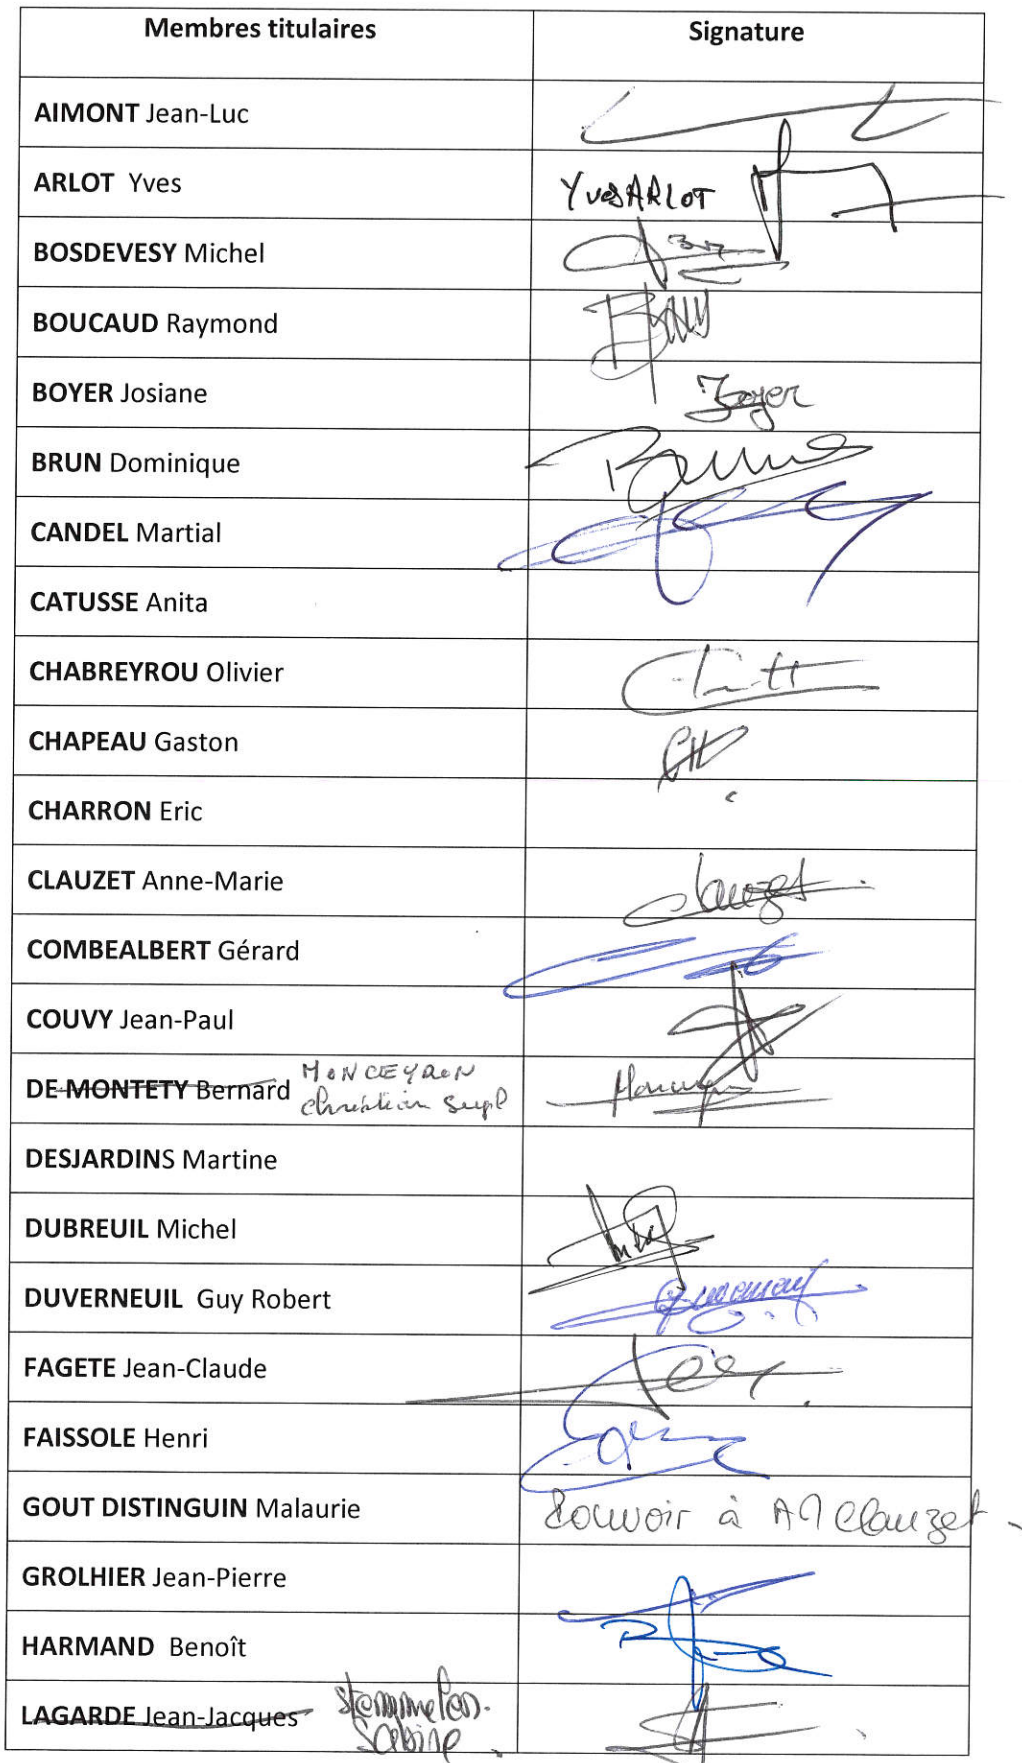 Membres titulaires Signature
AIMONT Jean-Luc
ARLOT Yves Yves ARLOT
BOSDEVESY Michel
BOUCAUD Raymond
BOYER Josiane Boyer
BRUN Dominique
CANDEL Martial
CATUSSE Anita
CHABREYROU Olivier
CHAPEAU Gaston
CHARRON Eric
CLAUZET Anne-Marie Clauzet
COMBEALBERT Gérard
COUVY Jean-Paul
DE MONTETY Bernard MONCEYRON
Christian Supl
DESJARDINS Martine
DUBREUIL Michel
DUVERNEUIL Guy Robert
FAGETE Jean-Claude
FAISSOLE Henri
GOUT DISTINGUIN Malaurie Pouvoir à AM Clauzet.
GROLHIER Jean-Pierre
HARMAND Benoît
LAGARDE Jean-Jacques Stemmelen.
Sabine.